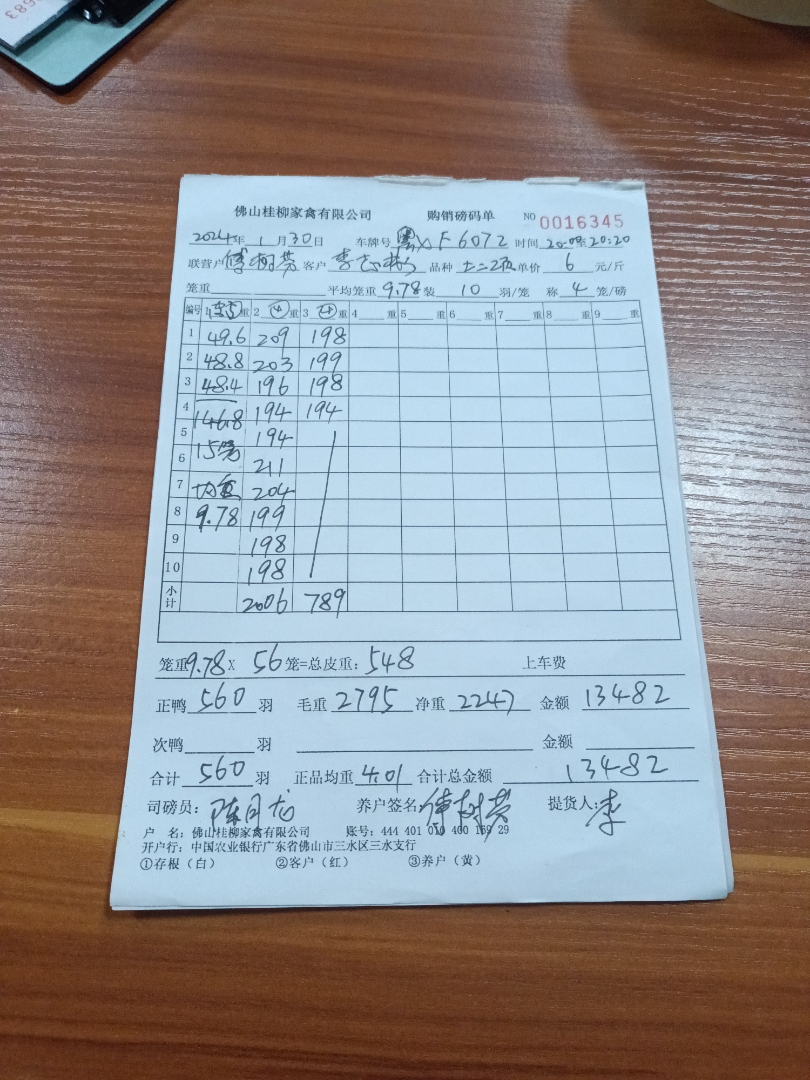 佛山桂柳家禽有限公司 购销磅码单 NO 0016345
2024年 1月30日 车牌号 F6072 时间 20:09至20:20
联营户 傅树芬 客户 李志 品种 土二 单价 6 元/斤
笼重 平均笼重 9.78 装 10 羽/笼 称 4 笼/磅
编号 1 重 2 ④ 重 3 ④ 重 4 重 5 重 6 重 7 重 8 重 9 重
1 49.6 209 198
2 48.8 203 199
3 48.4 196 198
4 146.8 194 194
5 15笼 194
6 211
7 均重 204
8 9.78 199
9 198
10 198
小计 2006 789
笼重 9.78 X 56 笼=总皮重: 548 上车费
正鸭 560 羽 毛重 2795 净重 2247 金额 13482
次鸭 羽 金额
合计 560 羽 正品均重 4.01 合计总金额 13482
司磅员: 陈月龙 养户签名: 傅树芬 提货人: 李
户 名: 佛山桂柳家禽有限公司 账号: 444 401 010 400 169 29
开户行: 中国农业银行广东省佛山市三水区三水支行
①存根(白) ②客户(红) ③养户(黄)